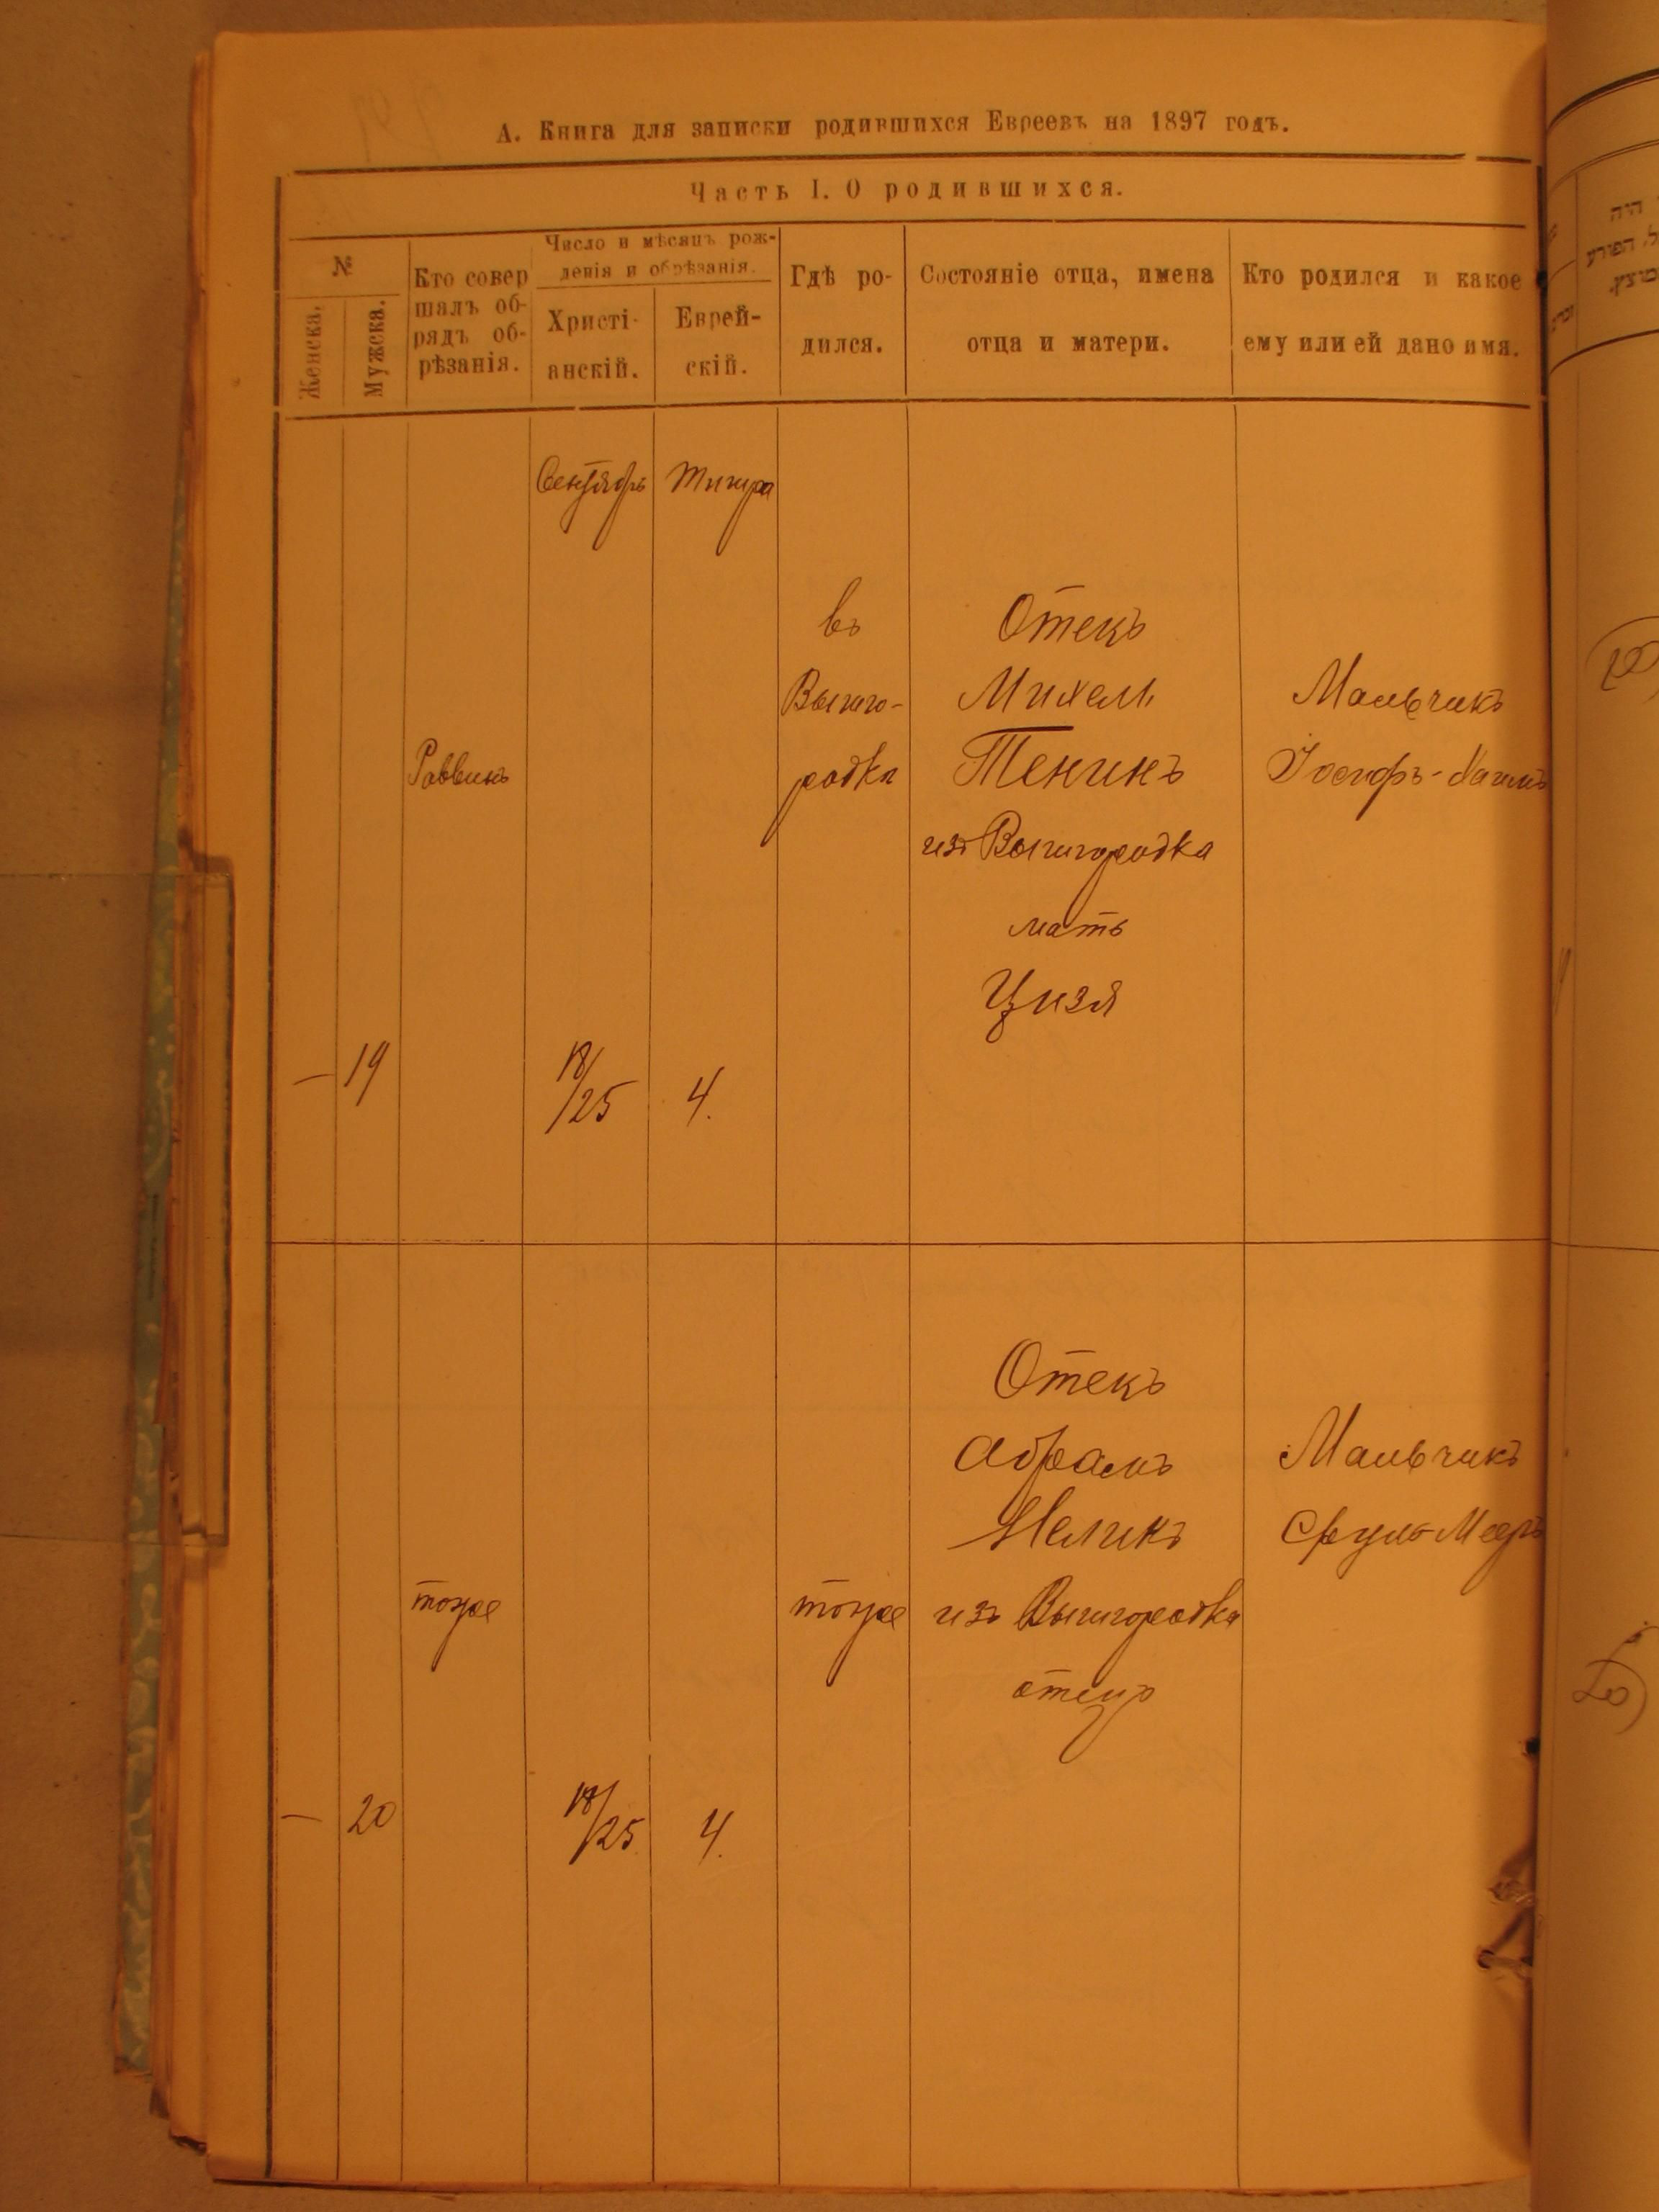 А. Книга для записки родившихся Евреевъ на 1897 годъ.
Часть I. О родившихся.
№
Женска.
Мужска.
Кто совер
шалъ об-
рядъ об-
рѣзанія.
Число и мѣсяцъ рож-
денія и обрѣзанія.
Христі-
анскій.
Еврей-
скій.
Гдѣ ро-
дился.
Состояніе отца, имена
отца и матери.
Кто родился и какое
ему или ей дано имя.
Сентябрь
Тишра
— 19
Раввинъ
18/25
4.
въ
Вышго-
родка
Отекъ
Михель
Тенинъ
изъ Вышгородка
мать
Цизя
Мальчикъ
Іосифъ-
— 20
тоже
18/25.
4.
тоже
Отекъ
Абрамъ
изъ Вышгородка
отецъ
Мальчикъ
Сруль-
היה